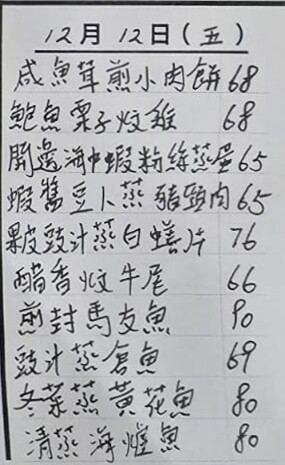 12月12日(五)
咸魚茸煎小肉餅 68
鮑魚栗子炆雞 68
開邊海中蝦粉絲蒸蛋 65
蝦醬豆卜蒸豬頸肉 65
果皮豉汁蒸白鱔片 76
醋香炆牛尾 66
煎封馬友魚 90
豉汁蒸倉魚 69
冬菜蒸黃花魚 80
清蒸海魚 80